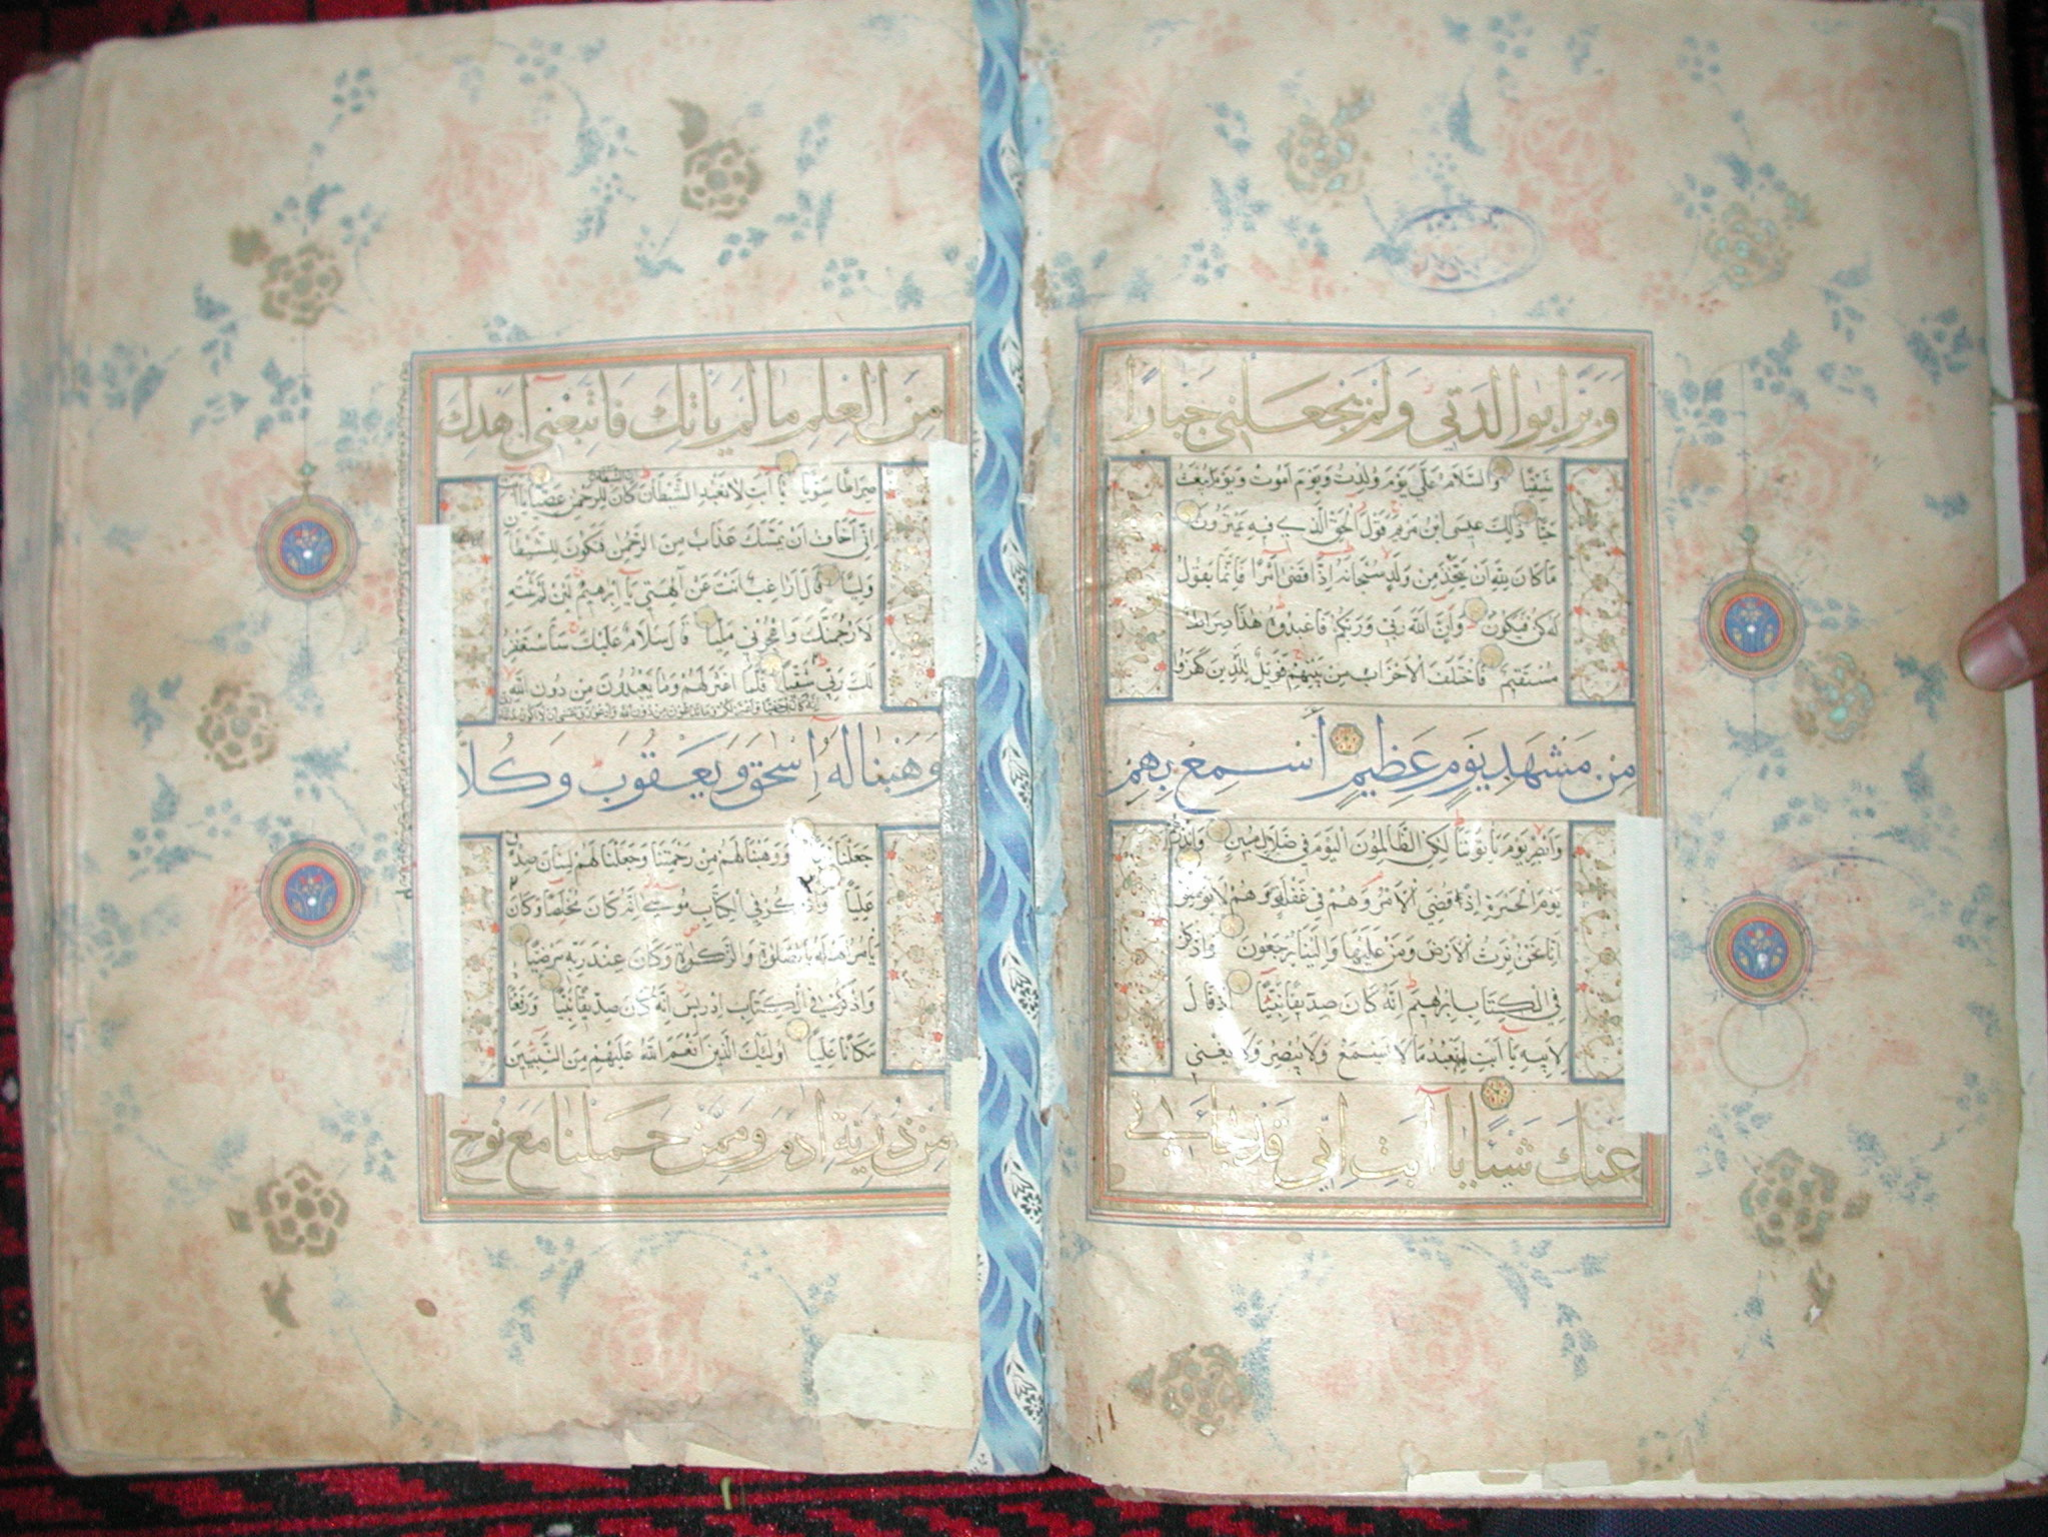 وَبَرًّا بِوَالِدَتِي وَلَمْ يَجْعَلْنِي جَبَّارًا
شَقِيًّا وَالسَّلَامُ عَلَيَّ يَوْمَ وُلِدْتُ وَيَوْمَ أَمُوتُ وَيَوْمَ أُبْعَثُ
حَيًّا ذَلِكَ عِيسَى ابْنُ مَرْيَمَ قَوْلَ الْحَقِّ الَّذِي فِيهِ يَمْتَرُونَ
مَا كَانَ لِلَّهِ أَنْ يَتَّخِذَ مِنْ وَلَدٍ سُبْحَانَهُ إِذَا قَضَى أَمْرًا فَإِنَّمَا يَقُولُ
لَهُ كُنْ فَيَكُونُ وَإِنَّ اللَّهَ رَبِّي وَرَبُّكُمْ فَاعْبُدُوهُ هَذَا صِرَاطٌ
مُسْتَقِيمٌ فَاخْتَلَفَ الْأَحْزَابُ مِنْ بَيْنِهِمْ فَوَيْلٌ لِلَّذِينَ كَفَرُوا
مِنْ مَشْهَدِ يَوْمٍ عَظِيمٍ أَسْمِعْ بِهِمْ
وَأَبْصِرْ يَوْمَ يَأْتُونَنَا لَكِنِ الظَّالِمُونَ الْيَوْمَ فِي ضَلَالٍ مُبِينٍ وَأَنْذِرْهُمْ
يَوْمَ الْحَسْرَةِ إِذْ قُضِيَ الْأَمْرُ وَهُمْ فِي غَفْلَةٍ وَهُمْ لَا يُؤْمِنُونَ
إِنَّا نَحْنُ نَرِثُ الْأَرْضَ وَمَنْ عَلَيْهَا وَإِلَيْنَا يُرْجَعُونَ وَاذْكُرْ
فِي الْكِتَابِ إِبْرَاهِيمَ إِنَّهُ كَانَ صِدِّيقًا نَبِيًّا إِذْ قَالَ
لِأَبِيهِ يَا أَبَتِ لِمَ تَعْبُدُ مَا لَا يَسْمَعُ وَلَا يُبْصِرُ وَلَا يُغْنِي
عَنْكَ شَيْئًا يَا أَبَتِ إِنِّي قَدْ جَاءَنِي
مِنَ الْعِلْمِ مَا لَمْ يَأْتِكَ فَاتَّبِعْنِي أَهْدِكَ
صِرَاطًا سَوِيًّا يَا أَبَتِ لَا تَعْبُدِ الشَّيْطَانَ إِنَّ الشَّيْطَانَ كَانَ لِلرَّحْمَنِ عَصِيًّا يَا أَبَتِ
إِنِّي أَخَافُ أَنْ يَمَسَّكَ عَذَابٌ مِنَ الرَّحْمَنِ فَتَكُونَ لِلشَّيْطَانِ
وَلِيًّا قَالَ أَرَاغِبٌ أَنْتَ عَنْ آلِهَتِي يَا إِبْرَاهِيمُ لَئِنْ لَمْ تَنْتَهِ
لَأَرْجُمَنَّكَ وَاهْجُرْنِي مَلِيًّا قَالَ سَلَامٌ عَلَيْكَ سَأَسْتَغْفِرُ
لَكَ رَبِّي شَقِيًّا فَلَمَّا اعْتَزَلَهُمْ وَمَا يَعْبُدُونَ مِنْ دُونِ اللَّهِ
إنه كان بي حفيا وأعتزلكم وما تدعون من دون الله وأدعو ربي عسى أن لا أكون بدعاء
وَهَبْنَا لَهُ إِسْحَقَ وَيَعْقُوبَ وَكُلًّا
جَعَلْنَا نَبِيًّا وَوَهَبْنَا لَهُمْ مِنْ رَحْمَتِنَا وَجَعَلْنَا لَهُمْ لِسَانَ صِدْقٍ
عَلِيًّا وَاذْكُرْ فِي الْكِتَابِ مُوسَى إِنَّهُ كَانَ مُخْلَصًا وَكَانَ
يَأْمُرُ أَهْلَهُ بِالصَّلَوةِ وَالزَّكَوةِ وَكَانَ عِنْدَ رَبِّهِ مَرْضِيًّا
وَاذْكُرْ فِي الْكِتَابِ إِدْرِيسَ إِنَّهُ كَانَ صِدِّيقًا نَبِيًّا وَرَفَعْنَاهُ
مَكَانًا عَلِيًّا أُولَئِكَ الَّذِينَ أَنْعَمَ اللَّهُ عَلَيْهِمْ مِنَ النَّبِيِّينَ
مِنْ ذُرِّيَّةِ آدَمَ وَمِمَّنْ حَمَلْنَا مَعَ نُوحٍ